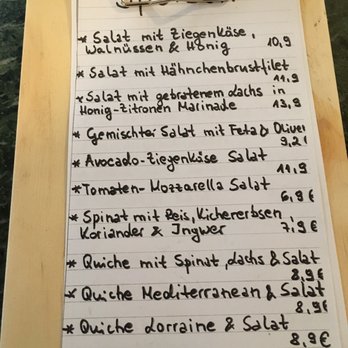 * Salat mit Ziegenkäse,
Walnüssen & Honig 10,9
* Salat mit Hähnchenbrustfilet
11,9
* Salat mit gebratenem Lachs in
Honig-Zitronen Marinade 13,9
* Gemischter Salat mit Feta & Oliven
9,2
* Avocado-Ziegenkäse Salat
11,9
* Tomaten-Mozzarella Salat
6,9 €
* Spinat mit Reis, Kichererbsen,
Koriander & Ingwer 7,9 €
* Quiche mit Spinat, Lachs & Salat
8,9 €
* Quiche Mediterranean & Salat
8,9 €
* Quiche Lorraine & Salat
8,9 €